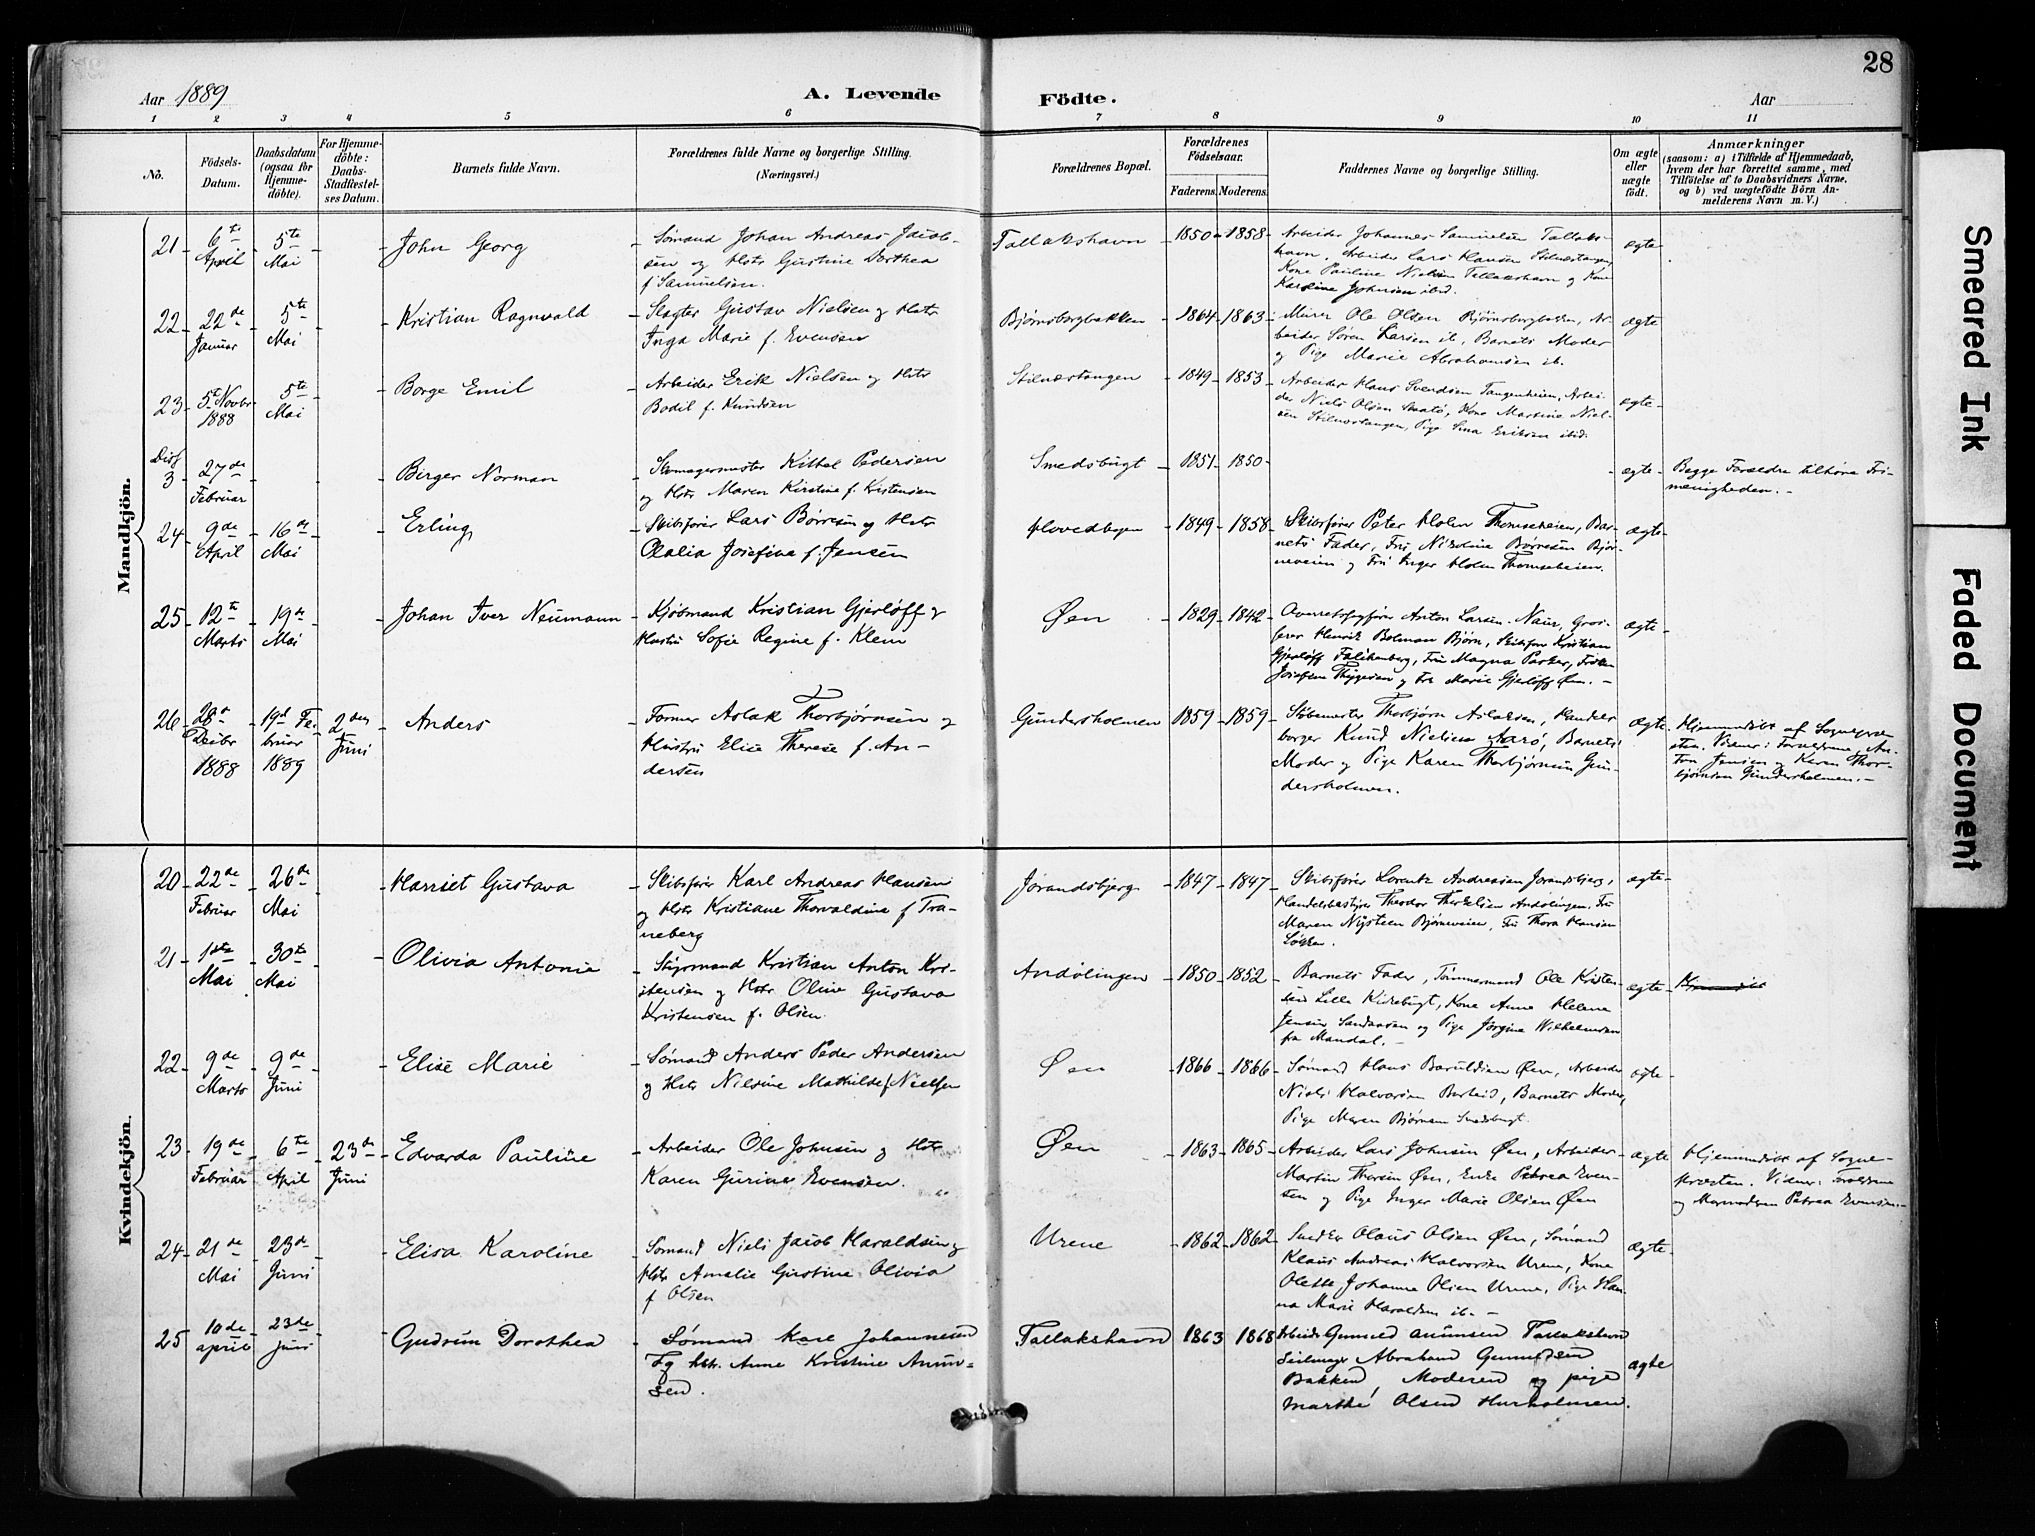 28
Aar 1889
A. Levende
Födte.
Aar
1 2 3 4 5 6 7 8 9 10 11
No.
Födsels-
Datum.
Daabsdatum
(ogsaa för
Hjemme-
döbte).
For Hjemme-
döbte:
Daabs-
Stadfæstel-
ses Datum.
Barnets fulde Navn.
Forældrenes fulde Navne og borgerlige Stilling.
(Næringsvei.)
Forældrenes Bopæl.
Forældrenes
Födselsaar.
Faderens. Moderens.
Faddernes Navne og borgerlige Stilling.
Om ægte
eller
uægte
födt.
Anmærkninger
(saasom: a) i Tilfælde af Hjemmedaab,
hvem der har forrettet samme, med
Tilföielse af to Daabsvidners Navne,
og b) ved uægtefödte Börn An-
melderens Navn m. V.)
Mandkjön.
21 6te April 5te Mai John Georg
Sømand Johan Andreas Jacob-
sen og Hstr Gustine Dorthea
f Samuelsen.
Tallakshavn 1850 1858
Arbeider Johannes Samuelsen Tallaks-
havn, Arbeider Lars Hansen Stilnestangen,
Kone Pauline Nielsen Tallakshavn og Kone
Karoline Johnsen ibid.
ægte
22 22de Januar 5te Mai Kristian Ragnvald
Slagter Gustav Nielsen og Hstr
Inga Marie f. Evensen
Bjørnsborgbakken 1864 1863
Murer Ole Olsen Bjørnsborgbakken, Ar-
beider Søren Larsen ib, Barnets Moder
og Pige Marie Abrahamsen ib.
ægte
23 5te Novbr 1888 5te Mai Borge Emil
Arbeider Erik Nielsen og Hstr
Bodil f. Knudsen
Stilnestangen 1849 1853
Arbeider Hans Svendsen Tangenheien, Arbei-
der Niels Olsen Skaatø, Kone Martine Niel-
sen Stilnestangen, Pige Sina Eriksen ibid.
ægte
Diss 3 27de Februar Birger Norman
Skomagermester Kittel Pedersen
og Hstr Maren Kirstine f. Kristensen
Smedsbugt 1851 1850
ægte
Begge Forældre tilhøre Fri-
menigheden.
24 9de April 16de Mai Erling
Skibsfører Lars Børresen og Hstr
Olalia Josefine f. Jensen
Hovedbyen 1849 1858
Skibsfører Peter Holm Thomseheien, Bar-
nets Fader, Fru Nikoline Børresen Bjør-
neveien og Fru Inger Holm Thomseheien.
ægte
25 12te Marts 19de Mai Johan Iver Neumann
Kjøbmand Kristian Gjerløff og
Hustru Sofie Regine f. Klem
Øen 1829 1842
Overretssagfører Anton Larsen Naur, Gros-
serer Henrik Bolman Bjørn, Skibsfører Kristian
Gjerløff Falkenberg, Fru Magna Parker, Frøken
Josefine Thygesen og Fru Marie Gjerløff Øen.
ægte
26 28de Decbr 1888 19de Fe-
bruar 1889 2den Juni Anders
Former Aslak Thorbjørnsen og
Hustru Elise Therese f. An-
dersen
Gundersholmen 1859 1859
Støbemester Thorbjørn Aslaksen, Handels-
borger Knud Nielsen Aarø, Barnets
Moder og Pige Karen Thorbjørnsen Gun-
dersholmen.
ægte
Hjemmedøbt af Sognepræ-
sten. Vidner: Forældrene, An-
ton Jensen og Karen Thor-
bjørnsen Gundersholmen.
Kvindekjön.
20 22de Februar 26de Mai Harriet Gustava
Skibsfører Karl Andreas Hansen
og Hstr Kristiane Thorvaldine f Tra-
neberg
Jørandsbjerg 1847 1847
Skibsfører Lorentz Andreasen Jorandsbjerg,
Handelsbestyrer Theodor Therkelsen Andølingen, Fru
Maren Nysteen Bjørneveien, Fru Thora Hansen
Løkken.
ægte
21 1ste Mai 30te Mai Olivia Antonie
Styrmand Kristian Anton Kri-
stensen og Hstr Oline Gustava
Kristensen f. Olsen
Andølingen 1850 1852
Barnets Fader, Tømmermand Ole Kristen-
sen Lille Kirkebugt, Kone Anne Helene
Jensen Sandaasen og Pige Jørgine Wilhelmsen
fra Mandal.
ægte
22 9de Marts 9de Juni Elise Marie
Sømand Anders Peder Andersen
og Hstr Nilsine Mathilde f Nielsen
Øen 1866 1866
Sømand Hans Baruldsen Øen, Arbeider
Niels Halvorsen Barteid, Barnets Moder,
Pige Maren Bjørnsen Smedsbugt.
ægte
23 19de Februar 6te April 23de Juni Edvarda Pauline
Arbeider Ole Johnsen og Hstr
Karen Gurine Evensen.
Øen 1863 1865
Arbeider Lars Johnsen Øen, Arbeider
Martin Thorsen Øen, Enke Petrea Even-
sen og Pige Inger Marie Olsen Øen
ægte
Hjemmedøbt af Sogne-
præsten. Vidner: Forældrene
og Mormoderen Petrea Evensen.
24 21de Mai 23de Juni Elisa Karoline
Sømand Niels Jacob Haraldsen og
Hstr Amalie Gustine Olivia
f Olsen
Urene 1862 1862
Snedker Olaus Olsen Øen, Sømand
Klaus Andreas Halvorsen Urene, Kone
Olette Johanne Olsen Urene, Pige Han-
na Marie Haraldsen ib.
ægte
25 10de april 23de juni Gudrun Dorothea
Sømand Karl Johannesen
og hstr. Anne Kristine Anun-
sen.
Tallakshavn 1863 1868
Arbeider Gunuld Anunsen Tallakshavn
Seilmager Abraham Gunuldsen
Bakken, Moderen og pige
Marthe Olsen Furholmen.
ægte
Smeared Ink
Faded Document